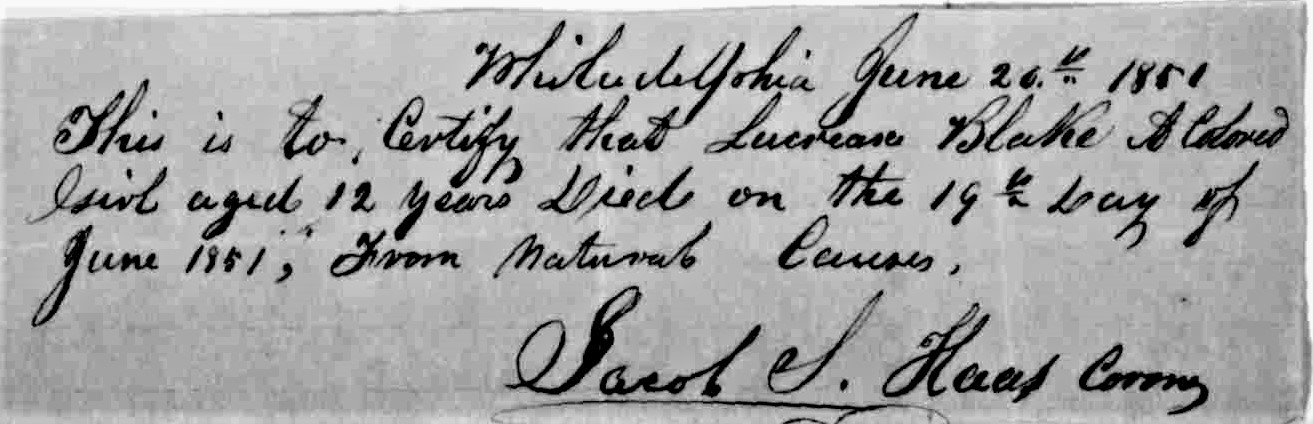 Philadelphia June 20.th 1851
This is to Certify that Blake A Colored
Girl aged 12 years Died on the 19th Day of
June 1851, From Natural Causes.
Jacob S. Haas Coroner